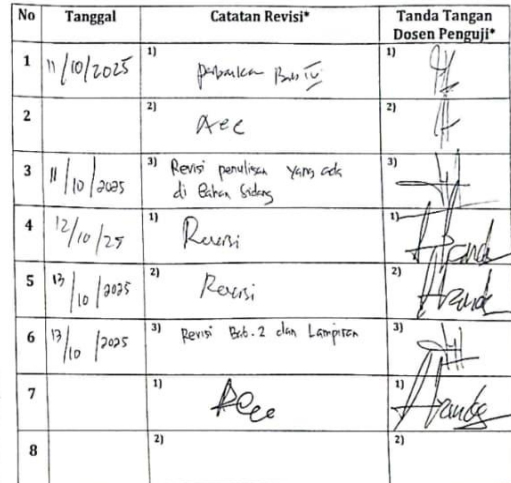 No Tanggal Catatan Revisi* Tanda Tangan
Dosen Penguji*
1 11/10/2025 1) perbaikan Bab IV 1)
2 2) Acc 2)
3 11/10/2025 3) Revisi penulisan yang ada 3)
di Bahan Sidang
4 12/10/25 1) Revisi 1)
5 13/10/2025 2) Revisi 2)
6 13/10/2025 3) Revisi Bab. 2 dan Lampiran 3)
7 1) Acc 1)
8 2) 2)